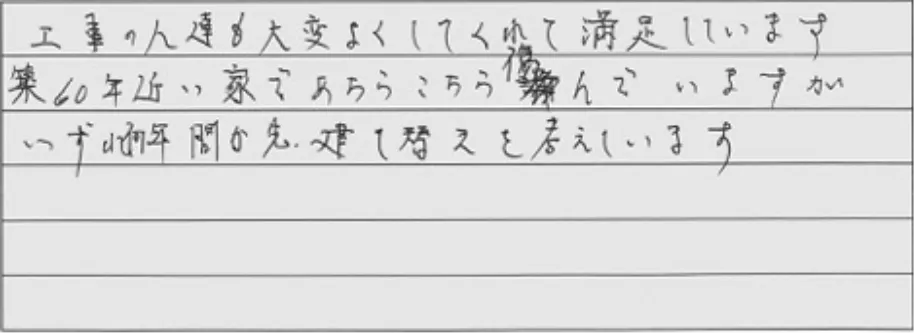 工事の人達も大変よくしてくれて満足しています
築60年近い家であちらこちら傷んでいますが
いずれ何年間か先.建て替えを考えています